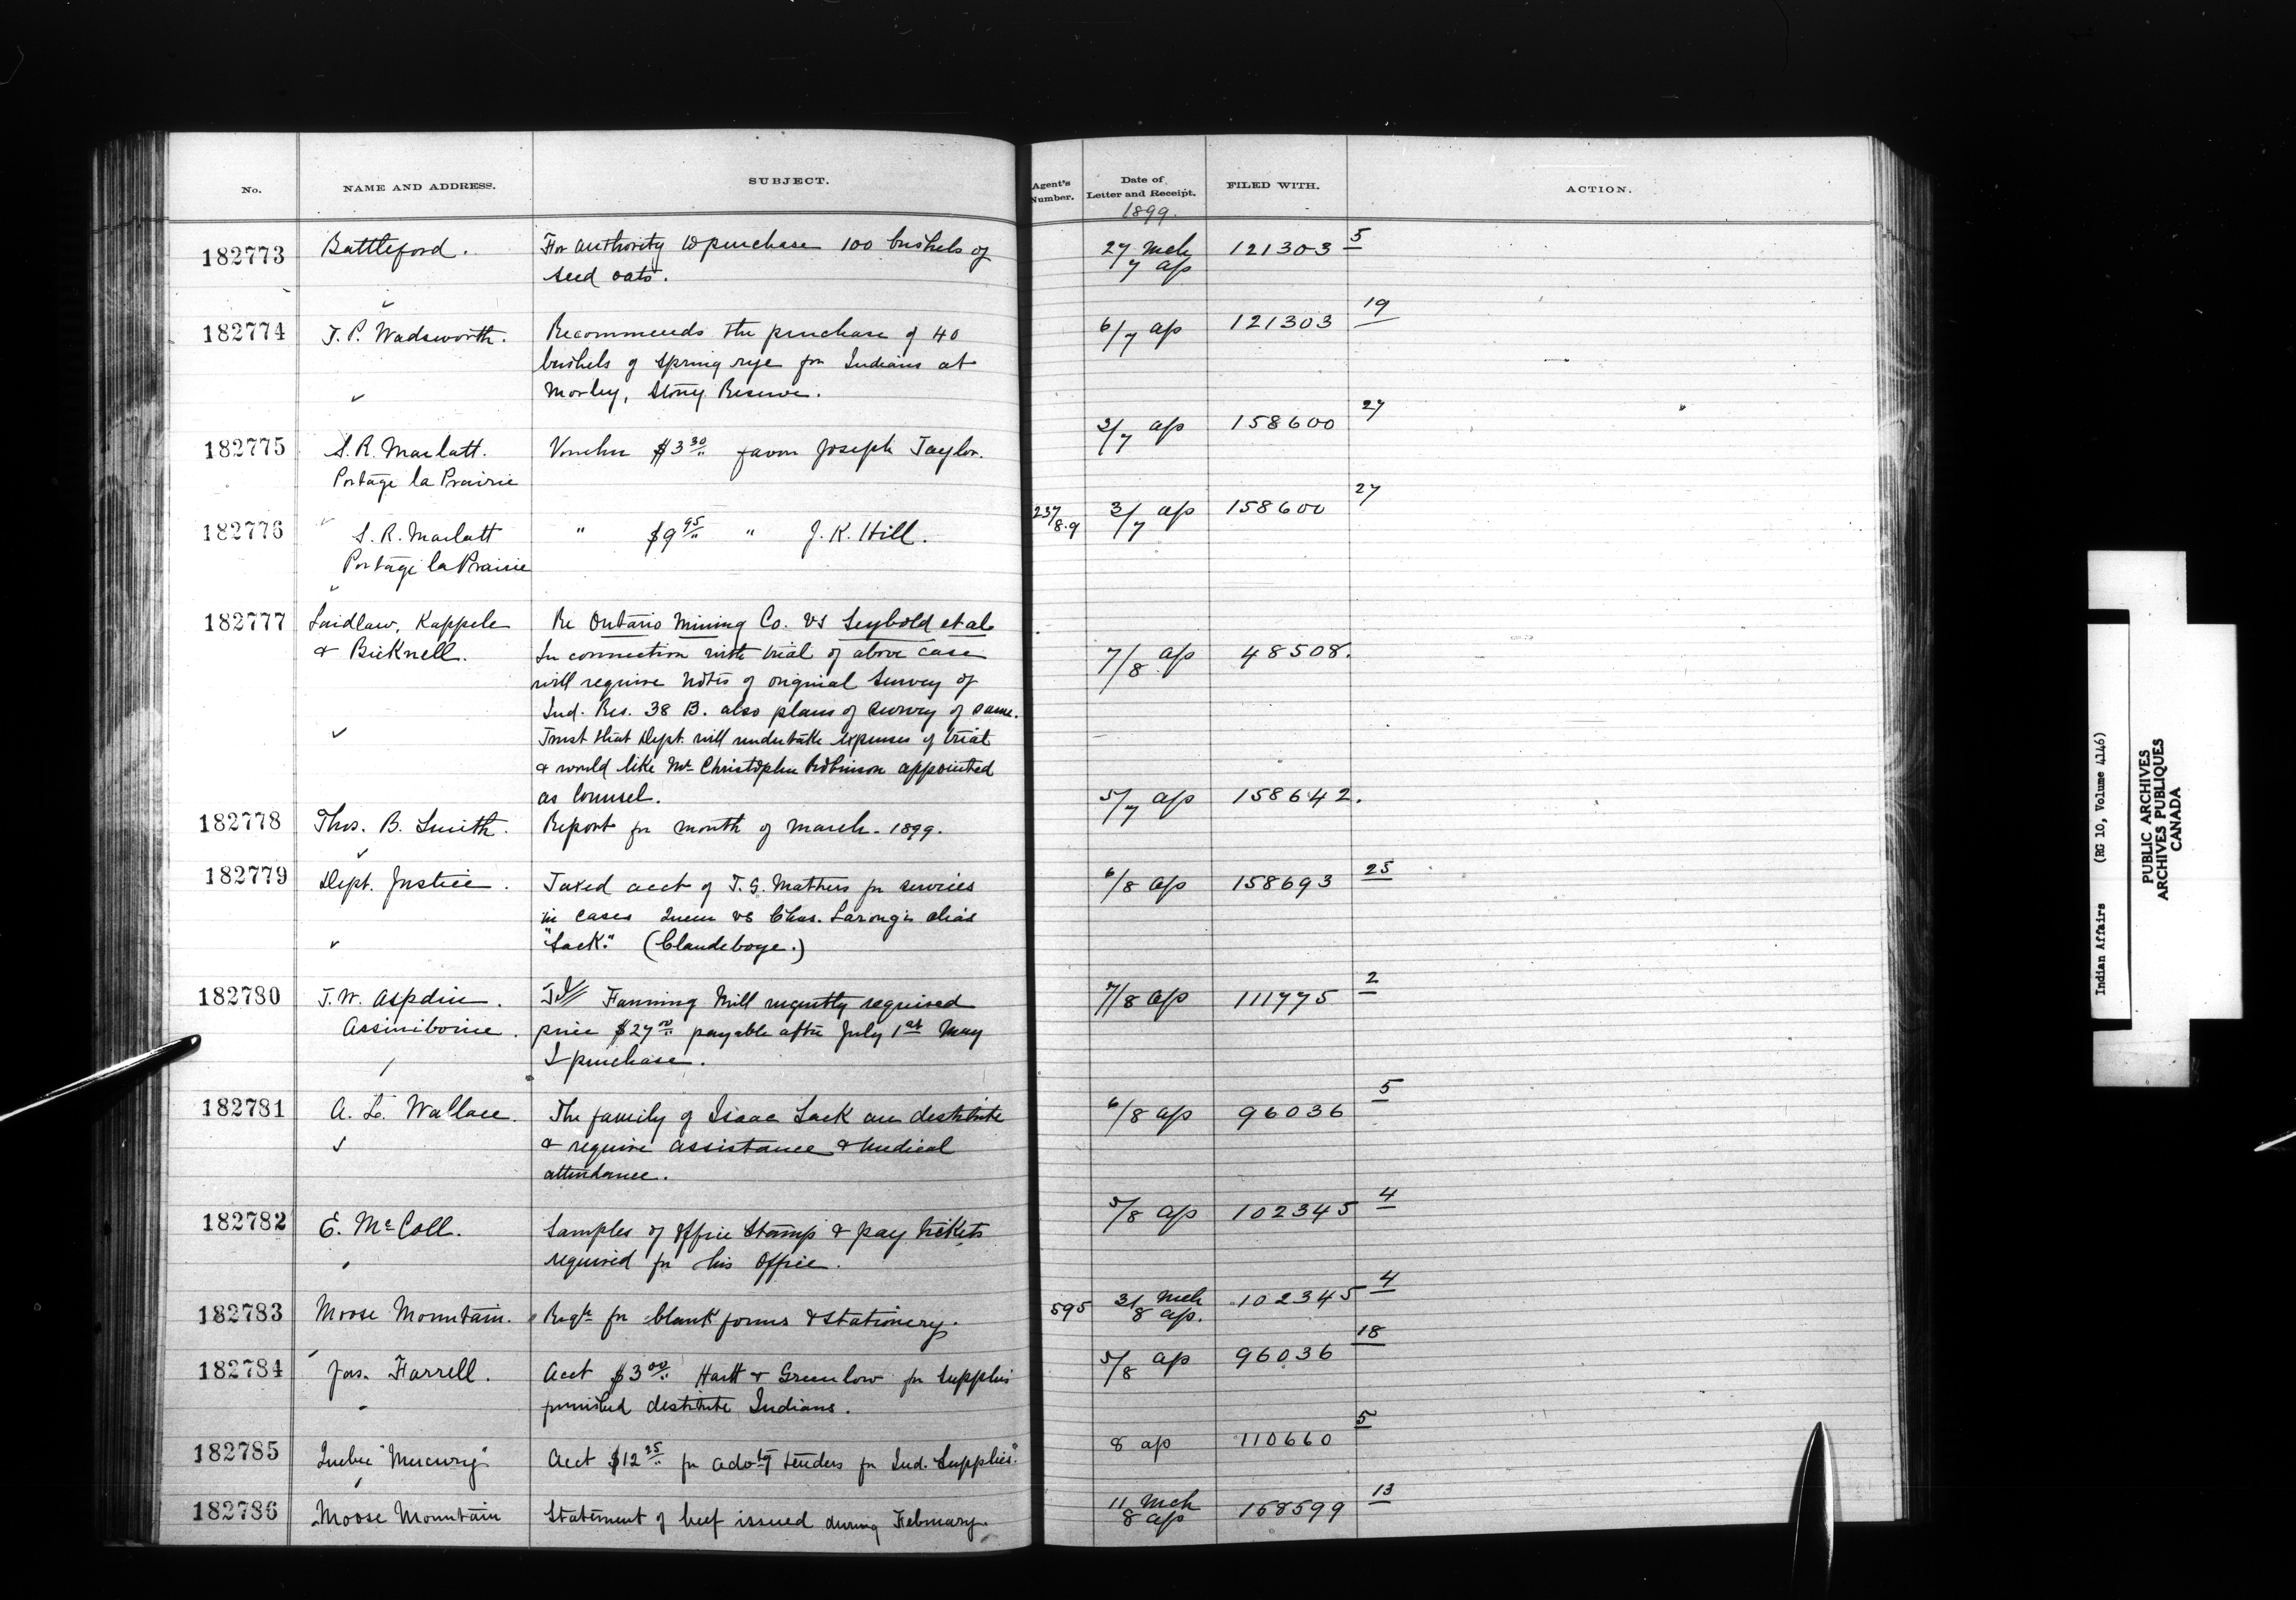 No. NAME AND ADDRESS. SUBJECT. Agent's Number. Date of Letter and Receipt. FILED WITH. ACTION.
1899.
182773 Battleford. For authority to purchase 100 bushels of 27 Mch 121303 5
seed oats. 7 ap
182774 T. P. Wadsworth. Recommends the purchase of 40 6/7 ap 121303 19
bushels of spring rye for Indians at
Morley, Stony Reserve.
182775 S. R. Marlatt. Voucher $3 30 favor Joseph Taylor. 3/7 ap 158600 27
Portage la Prairie
182776 S. R. Marlatt " $9 95 " J. K. Hill. 237/8.9 3/7 ap 158600 27
Portage la Prairie
182777 Laidlaw, Kappele Re Ontario Mining Co. vs Seybold et al
& Bicknell. In connection with trial of above case 7/8 ap 48508.
will require notes of original survey of
Ind. Res. 38 B. also plans of survey of same.
Trust that Dept. will undertake expenses of trial
& would like Mr Christopher Robinson appointed
as Counsel.
182778 Thos. B. Smith. Report for month of March. 1899. 5/7 ap 158642.
182779 Dept. Justice. Taxed acct of T. G. Mathers for services 6/8 ap 158693 25
in cases Queen vs Chas. alias
"Jack." (Clandeboye.)
182780 T. W. Aspdin. Fanning Mill urgently required 7/8 ap 111775 2
Assiniboine. price $27 00 payable after July 1st May
I purchase.
182781 A. L. Wallace. The family of Isaac are destitute 6/8 ap 96036 5
& require assistance & medical
attendance.
182782 E. McColl. Samples of office stamp & pay tickets 5/8 ap 102345 4
required for his office.
182783 Moose Mountain. Reqn for blank forms & stationery. 595 31 Mch 102345 4
8 ap.
182784 Jas. Farrell. Acct $3 00 Hartt & Greenlow for supplies 5/8 ap 96036 18
furnished destitute Indians.
182785 Quebec "Mercury" Acct $12 25 for advtg tenders for Ind. Supplies." 8 ap 110660 5
182786 Moose Mountain Statement of beef issued during February. 11 Mch 158599 13
8 ap
Indian Affairs (RG 10, Volume 4146)
PUBLIC ARCHIVES
ARCHIVES PUBLIQUES
CANADA